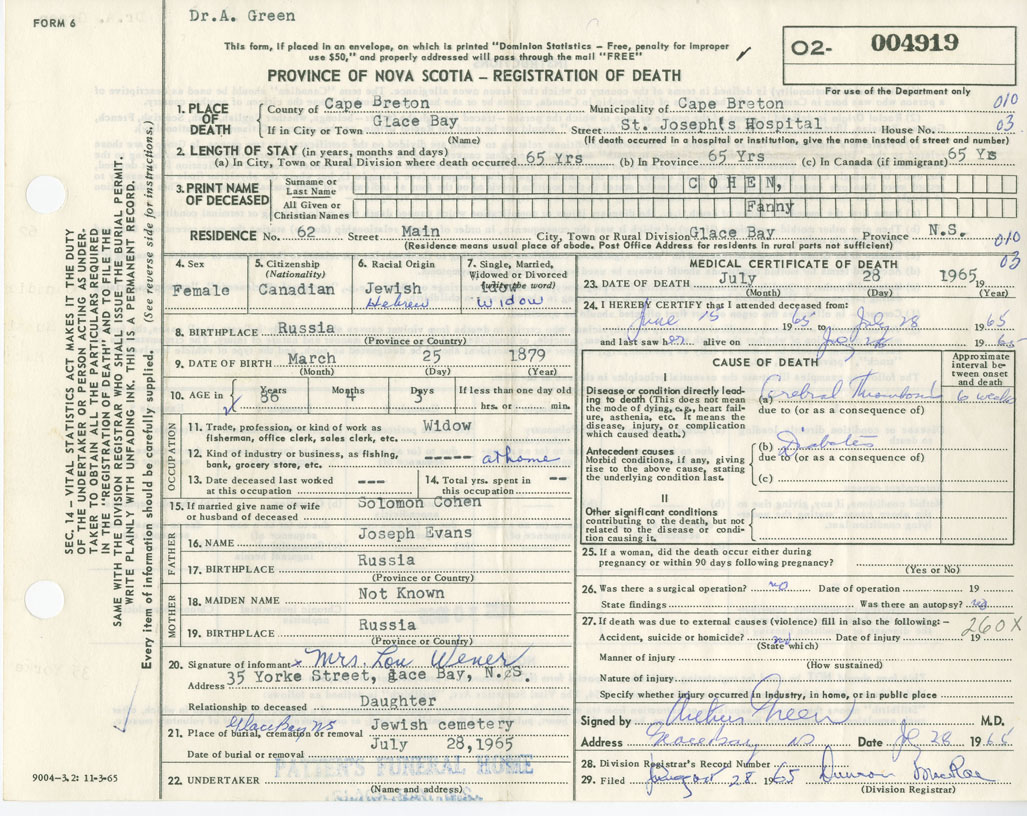 FORM 6
Dr.A. Green
This form, if placed in an envelope, on which is printed "Dominion Statistics – Free, penalty for improper
use $50," and properly addressed will pass through the mail "FREE"
O2- 004919
PROVINCE OF NOVA SCOTIA – REGISTRATION OF DEATH
For use of the Department only
1. PLACE OF DEATH
County of Cape Breton Municipality of Cape Breton 010
If in City or Town Glace Bay Street St. Joseph's Hospital House No. 03
(Name) (If death occurred in a hospital or institution, give the name instead of street and number)
2. LENGTH OF STAY (in years, months and days)
(a) In City, Town or Rural Division where death occurred 65 Yrs (b) In Province 65 Yrs (c) In Canada (if immigrant) 65 Yrs
3. PRINT NAME OF DECEASED
Surname or Last Name COHEN,
All Given or Christian Names Fanny
RESIDENCE No. 62 Street Main City, Town or Rural Division Glace Bay Province N.S.
(Residence means usual place of abode. Post Office Address for residents in rural parts not sufficient) 010
03
4. Sex
Female
5. Citizenship
(Nationality)
Canadian
6. Racial Origin
Jewish
Hebrew
7. Single, Married,
Widowed or Divorced
(write the word)
Widow
8. BIRTHPLACE Russia
(Province or Country)
9. DATE OF BIRTH March 25 1879
(Month) (Day) (Year)
10. AGE in Years Months Days If less than one day old
86 4 3 hrs. or min.
OCCUPATION
11. Trade, profession, or kind of work as
fisherman, office clerk, sales clerk, etc. Widow
12. Kind of industry or business, as fishing,
bank, grocery store, etc. ----- at home
13. Date deceased last worked
at this occupation ---
14. Total yrs. spent in
this occupation --
15. If married give name of wife
or husband of deceased Solomon Cohen
FATHER
16. NAME Joseph Evans
17. BIRTHPLACE Russia
(Province or Country)
MOTHER
18. MAIDEN NAME Not Known
19. BIRTHPLACE Russia
(Province or Country)
20. Signature of informant x Mrs. Lou Wener
Address 35 Yorke Street, glace Bay, N.S.
Relationship to deceased Daughter
21. Place of burial, cremation or removal Glace Bay NS Jewish cemetery
Date of burial or removal July 28,1965
22. UNDERTAKER PATTEN'S FUNERAL HOME
(Name and address)
MEDICAL CERTIFICATE OF DEATH
23. DATE OF DEATH July 28 1965
(Month) (Day) (Year)
24. I HEREBY CERTIFY that I attended deceased from:
June 15 1965 to July 28 1965
and last saw her alive on July 28 1965
CAUSE OF DEATH
Approximate
interval be-
tween onset
and death
I
Disease or condition directly lead-
ing to death (This does not mean
the mode of dying, e.g., heart fail-
ure, asthenia, etc. It means the
disease, injury, or complication
which caused death.)
(a) Cerebral Thrombosis 6 weeks
due to (or as a consequence of)
Antecedent causes
Morbid conditions, if any, giving
rise to the above cause, stating
the underlying condition last.
(b) Diabetes
due to (or as a consequence of)
(c)
II
Other significant conditions
contributing to the death, but not
related to the disease or condi-
tion causing it.
25. If a woman, did the death occur either during
pregnancy or within 90 days following pregnancy?
(Yes or No)
26. Was there a surgical operation? no Date of operation 19
State findings Was there an autopsy? no
27. If death was due to external causes (violence) fill in also the following:– 260X
Accident, suicide or homicide? no Date of injury 19
(State which)
Manner of injury
(How sustained)
Nature of injury
Specify whether injury occurred in industry, in home, or in public place
Signed by Arthur Green M.D.
Address Glace Bay NS Date July 28 1965
28. Division Registrar's Record Number
29. Filed August 28 1965 Duncan MacRae
(Division Registrar)
SEC. 14 – VITAL STATISTICS ACT MAKES IT THE DUTY
OF THE UNDERTAKER OR PERSON ACTING AS UNDER-
TAKER TO OBTAIN ALL THE PARTICULARS REQUIRED
IN THE "REGISTRATION OF DEATH" AND TO FILE THE
SAME WITH THE DIVISION REGISTRAR WHO SHALL ISSUE THE BURIAL PERMIT.
WRITE PLAINLY WITH UNFADING INK. THIS IS A PERMANENT RECORD.
Every item of information should be carefully supplied. (See reverse side for instructions.)
9004–3.2: 11-3-65